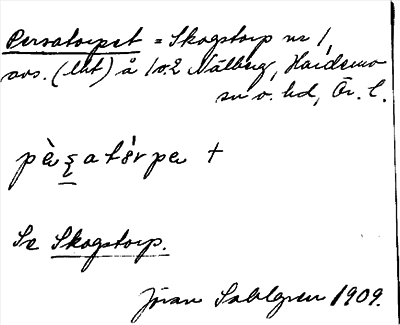 Persatorpet = Skogstorp nr 1,
avs. (lht) å 1 o. 2 Nälberg, Hardemo
sn o. hd, Ör. l.
pèʂatórpe +
Se Skogstorp.
Jöran Sahlgren 1909.